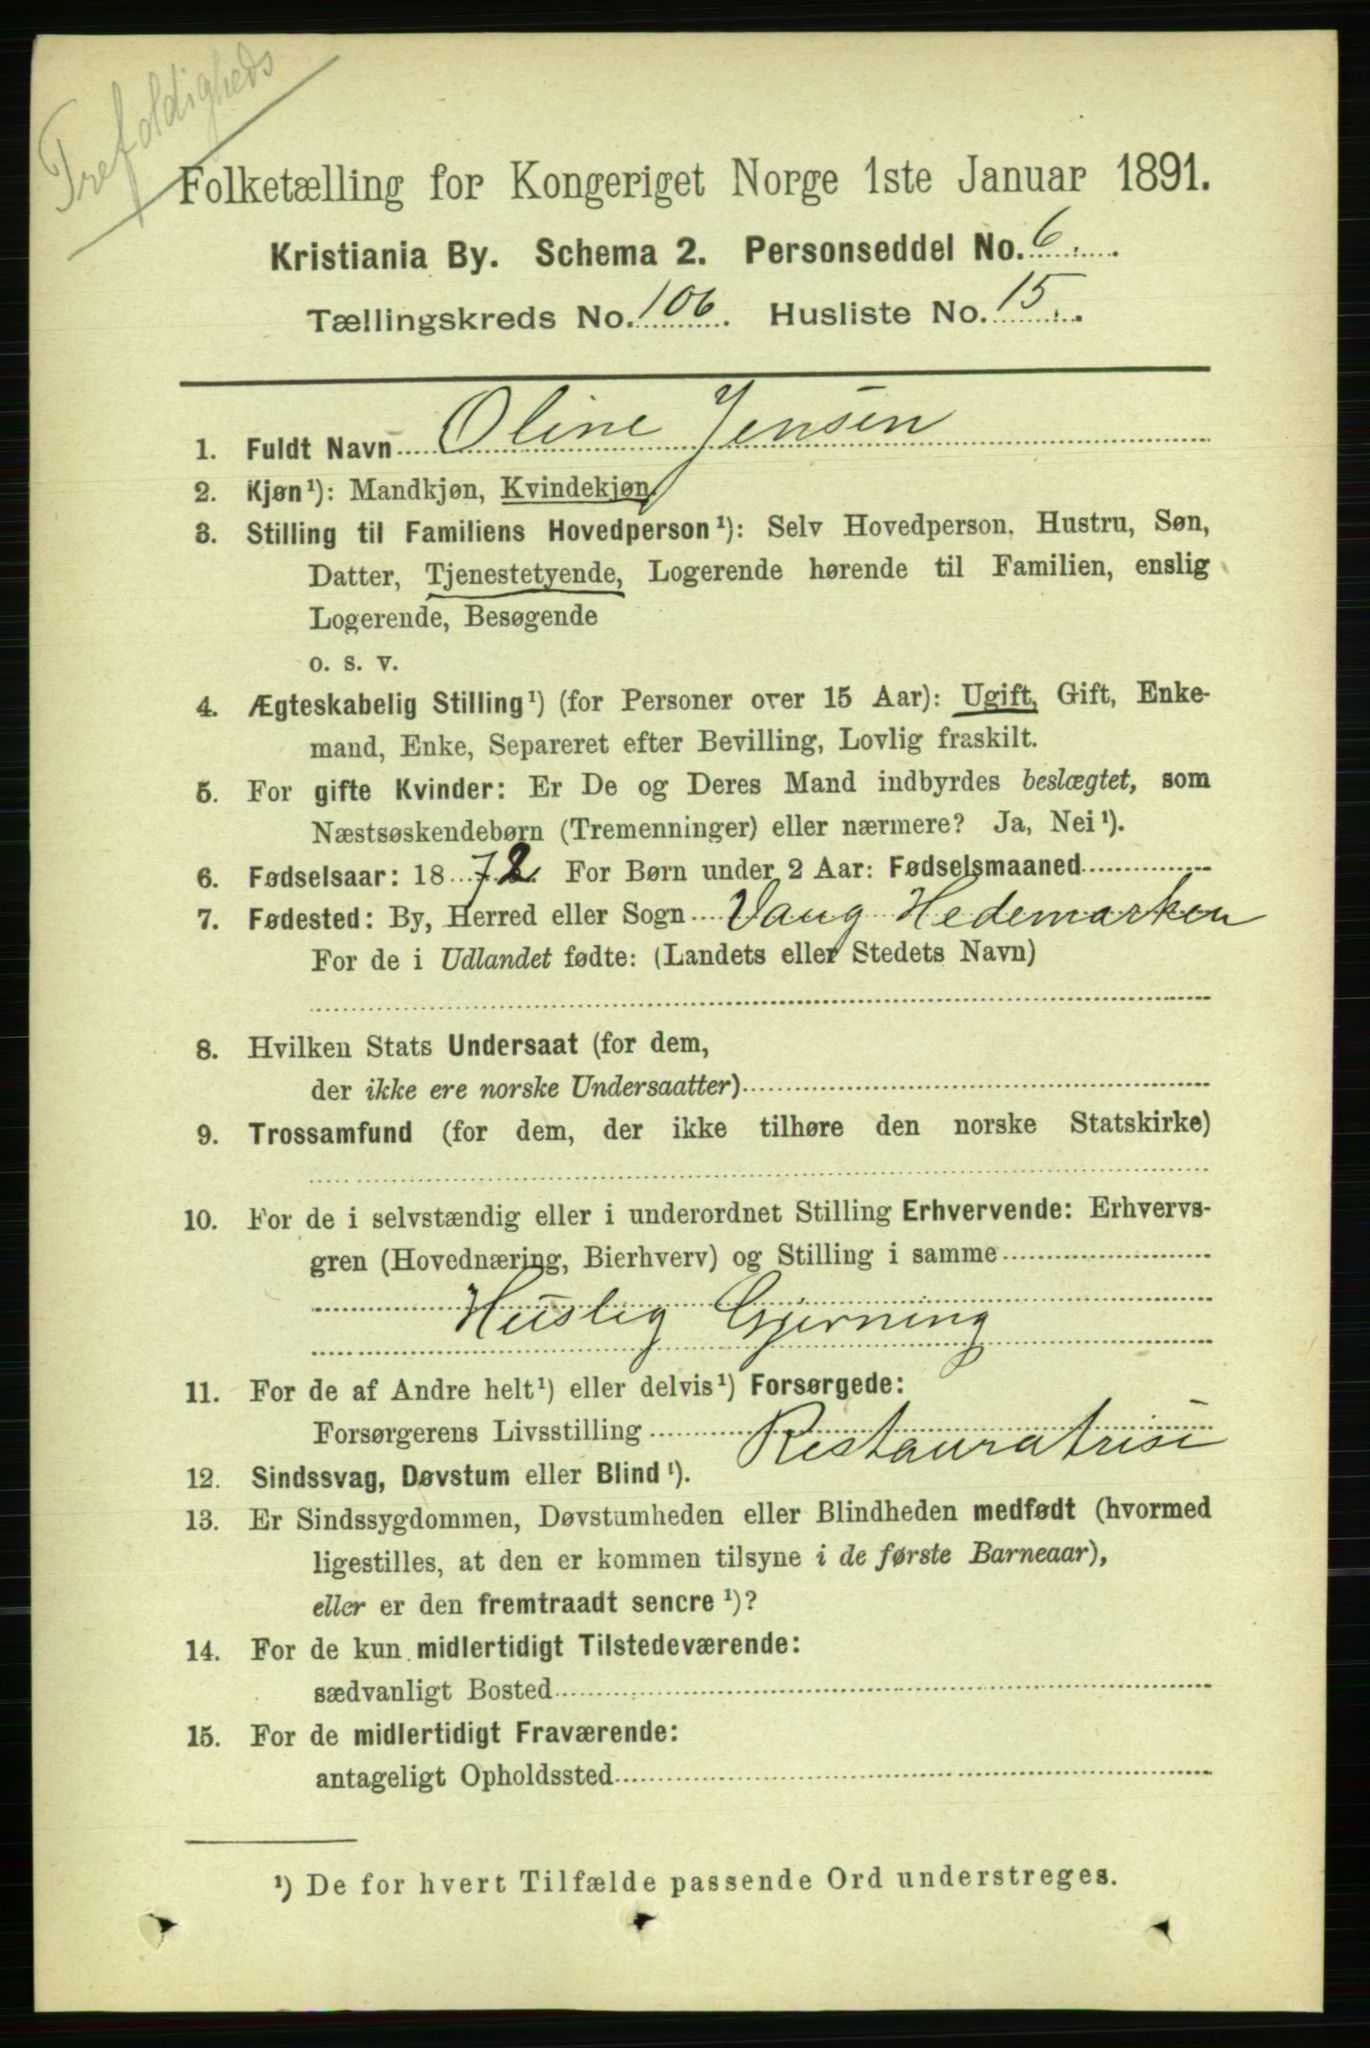 Trefoldigheds
Folketælling for Kongeriget Norge 1ste Januar 1891.
Kristiania By. Schema 2. Personseddel No. 6
Tællingskreds No. 106. Husliste No. 15.
1. Fuldt Navn Oline Jensen
2. Kjøn¹): Mandkjøn, Kvindekjøn.
3. Stilling til Familiens Hovedperson¹): Selv Hovedperson, Hustru, Søn,
Datter, Tjenestetyende, Logerende hørende til Familien, enslig
Logerende, Besøgende
o. s. v.
4. Ægteskabelig Stilling¹) (for Personer over 15 Aar): Ugift, Gift, Enke-
mand, Enke, Separeret efter Bevilling, Lovlig fraskilt.
5. For gifte Kvinder: Er De og Deres Mand indbyrdes beslægtet, som
Næstsøskendebørn (Tremenninger) eller nærmere? Ja, Nei¹).
6. Fødselsaar: 1872. For Børn under 2 Aar: Fødselsmaaned
7. Fødested: By, Herred eller Sogn Vang Hedemarken
For de i Udlandet fødte: (Landets eller Stedets Navn)
8. Hvilken Stats Undersaat (for dem,
der ikke ere norske Undersaatter)
9. Trossamfund (for dem, der ikke tilhøre den norske Statskirke)
10. For de i selvstændig eller i underordnet Stilling Erhvervende: Erhvervs-
gren (Hovednæring, Bierhverv) og Stilling i samme
Huslig Gjerning
11. For de af Andre helt¹) eller delvis¹) Forsørgede:
Forsørgerens Livsstilling Restauratrise
12. Sindssvag, Døvstum eller Blind¹).
13. Er Sindssygdommen, Døvstumheden eller Blindheden medfødt (hvormed
ligestilles, at den er kommen tilsyne i de første Barneaar),
eller er den fremtraadt senere¹)?
14. For de kun midlertidigt Tilstedeværende:
sædvanligt Bosted
15. For de midlertidigt Fraværende:
antageligt Opholdssted
¹) De for hvert Tilfælde passende Ord understreges.